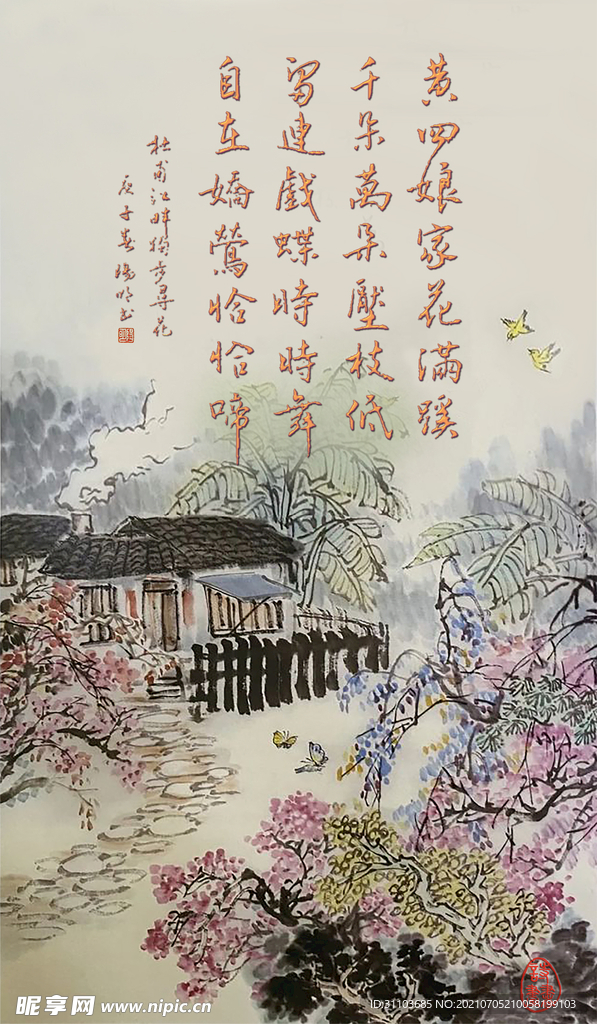 黄四娘家花满蹊
千朵萬朵壓枝低
留連戲蝶時時舞
自在嬌鶯恰恰啼
杜甫江畔獨步尋花
庚子春
昵享网 www.nipic.cn
ID:31103685 NO:20210705210058199103